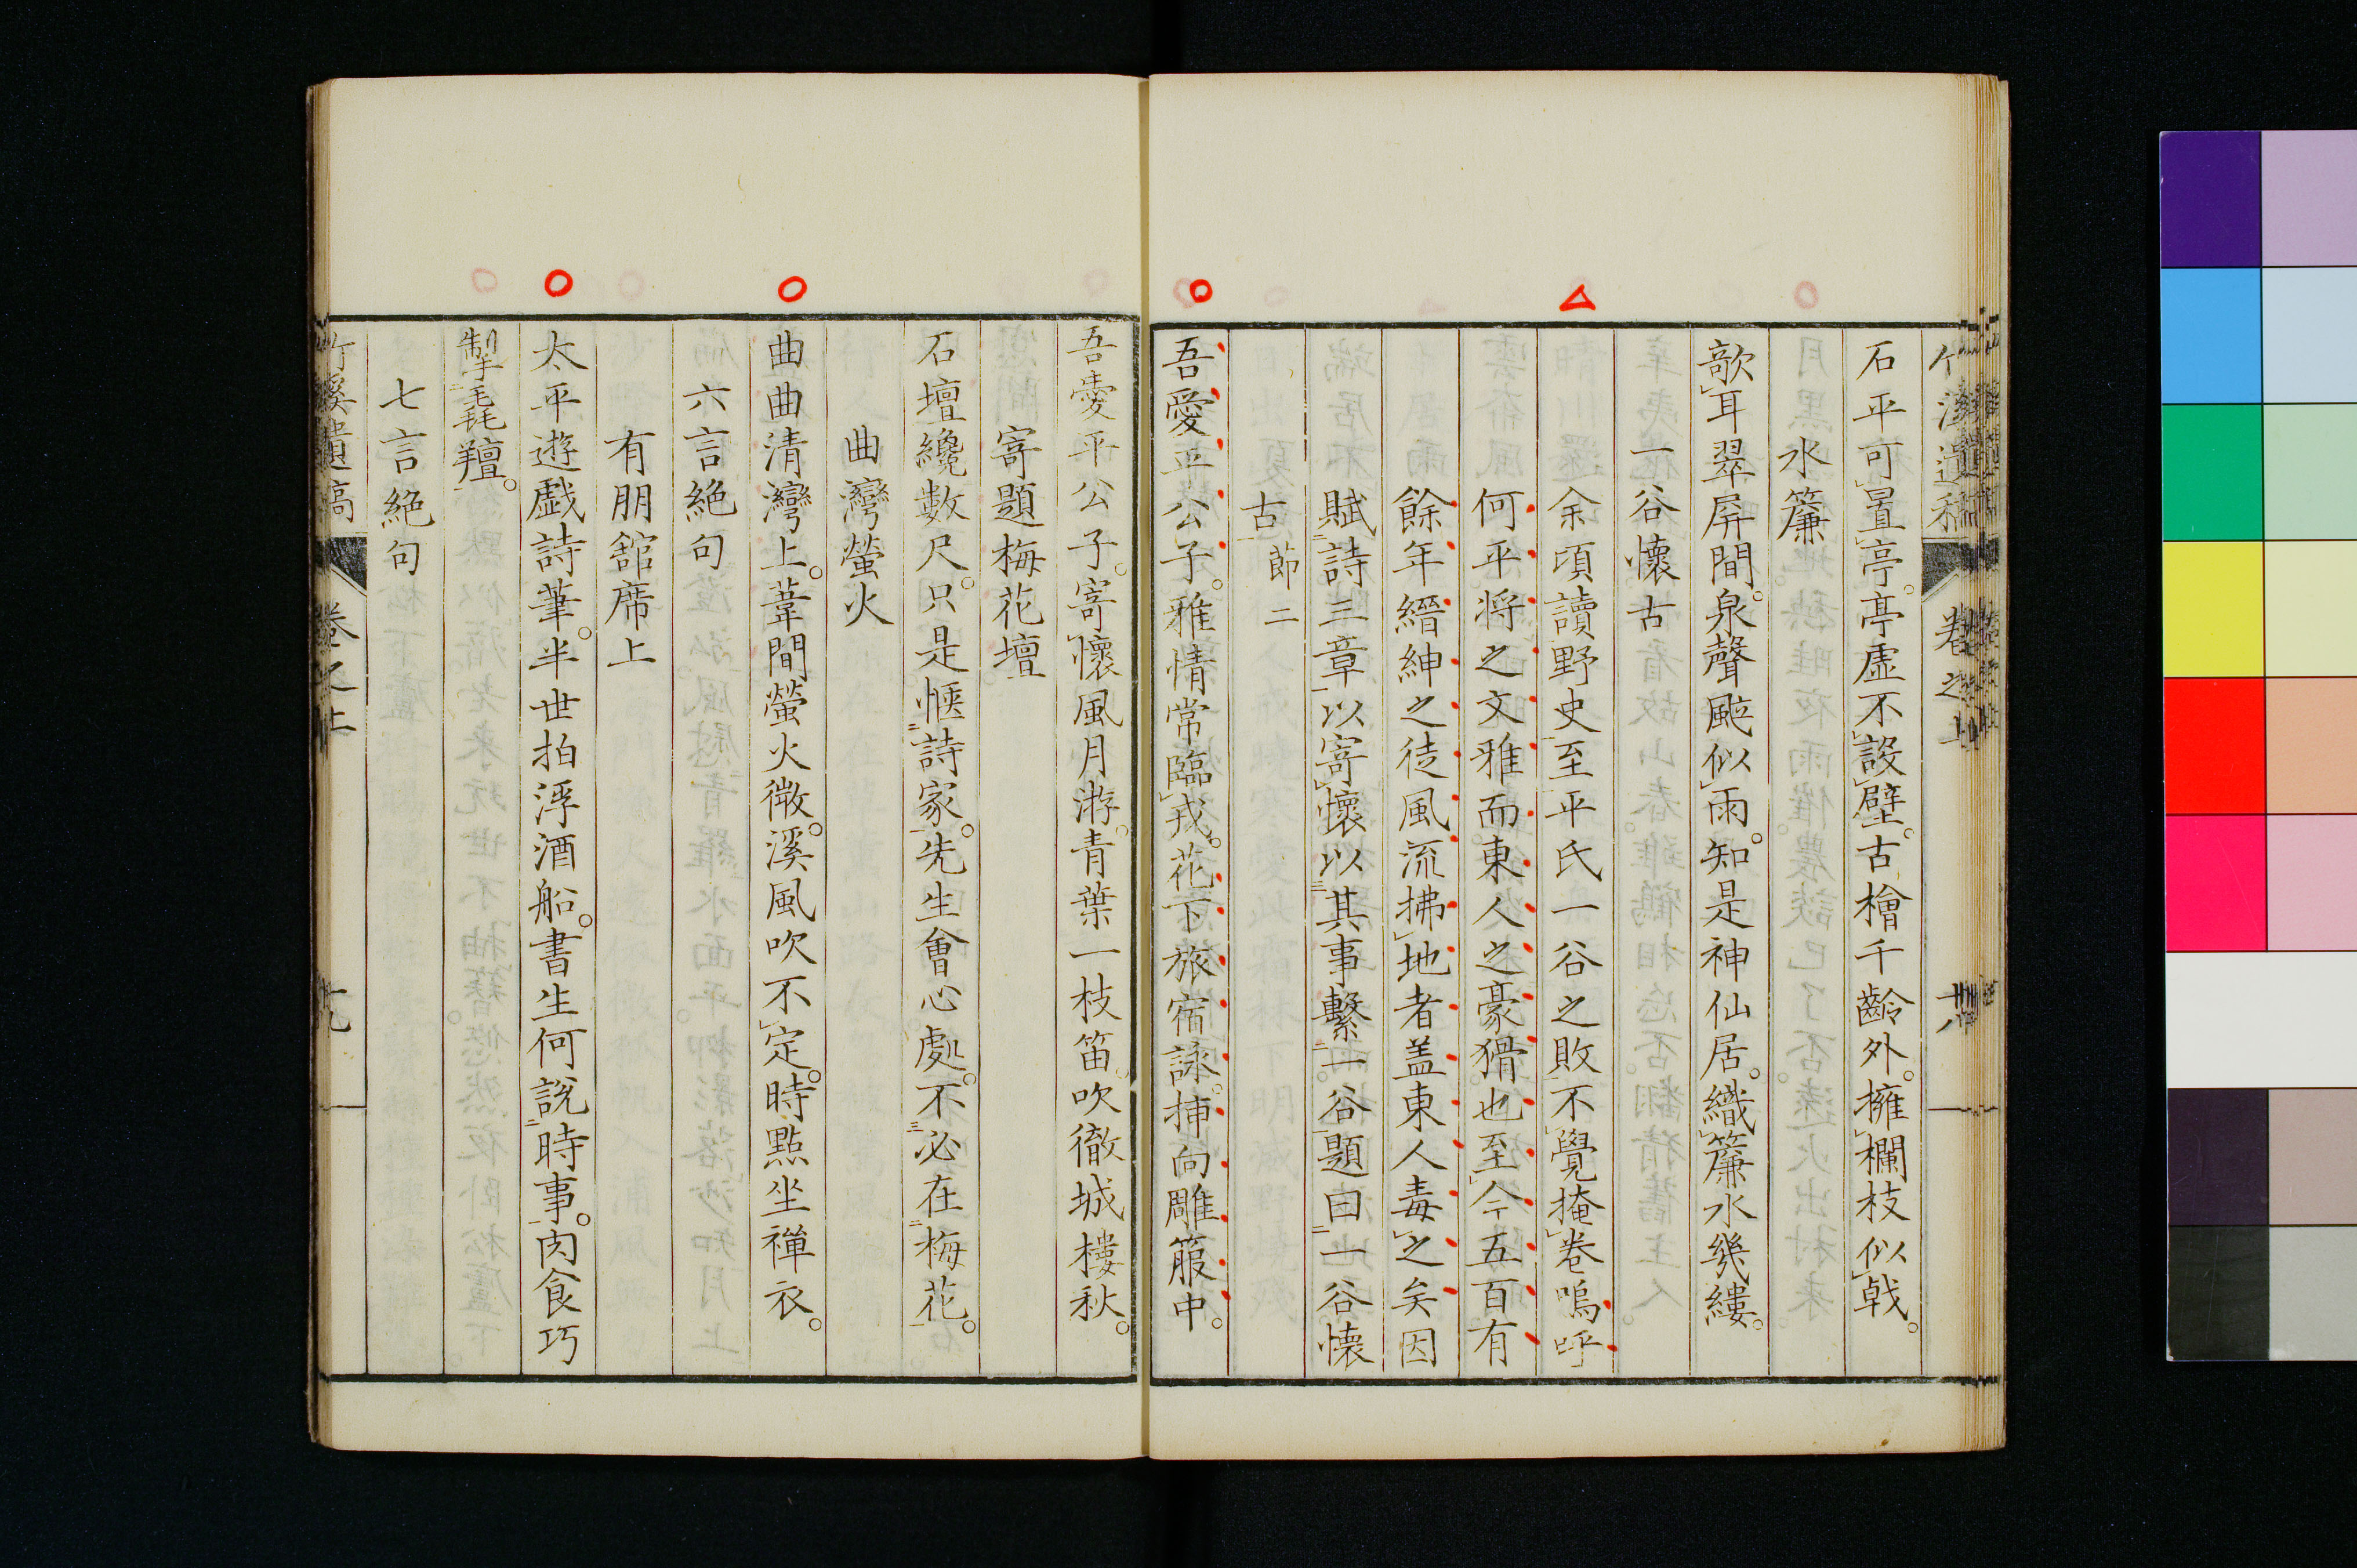 竹溪遺稿 卷之上 十八
石平可置亭。亭虛不設壁。古檜千齡外。擁欄枝似戟。
水簾
歌耳翠屏間。泉聲颭似雨。知是神仙居。織簾水幾縷。
一谷懷古
余頃讀野史至平氏一谷之敗不覺掩卷嗚呼
何平将之文雅而東人之豪猾也至今五百有
餘年縉紳之徒風流拂地者盖東人毒之矣因
賦詩三章以寄懷以其事繫一谷題曰一谷懷
古 節二
吾愛平公子。雅情常臨戎。花下旅宿詠。挿向雕箙中。
吾愛平公子。寄懷風月游。青葉一枝笛。吹徹城樓秋。
寄題梅花壇
石壇纔數尺。只是愜詩家。先生會心處。不必在梅花。
曲灣螢火
曲曲清灣上。葦間螢火微。溪風吹不定。時點坐禅衣。
六言絕句
有朋舘席上
太平遊戯詩筆。半世拍浮酒船。書生何說時事。肉食巧
掣毳羶。
七言絕句
竹溪遺稿 卷之上 十九